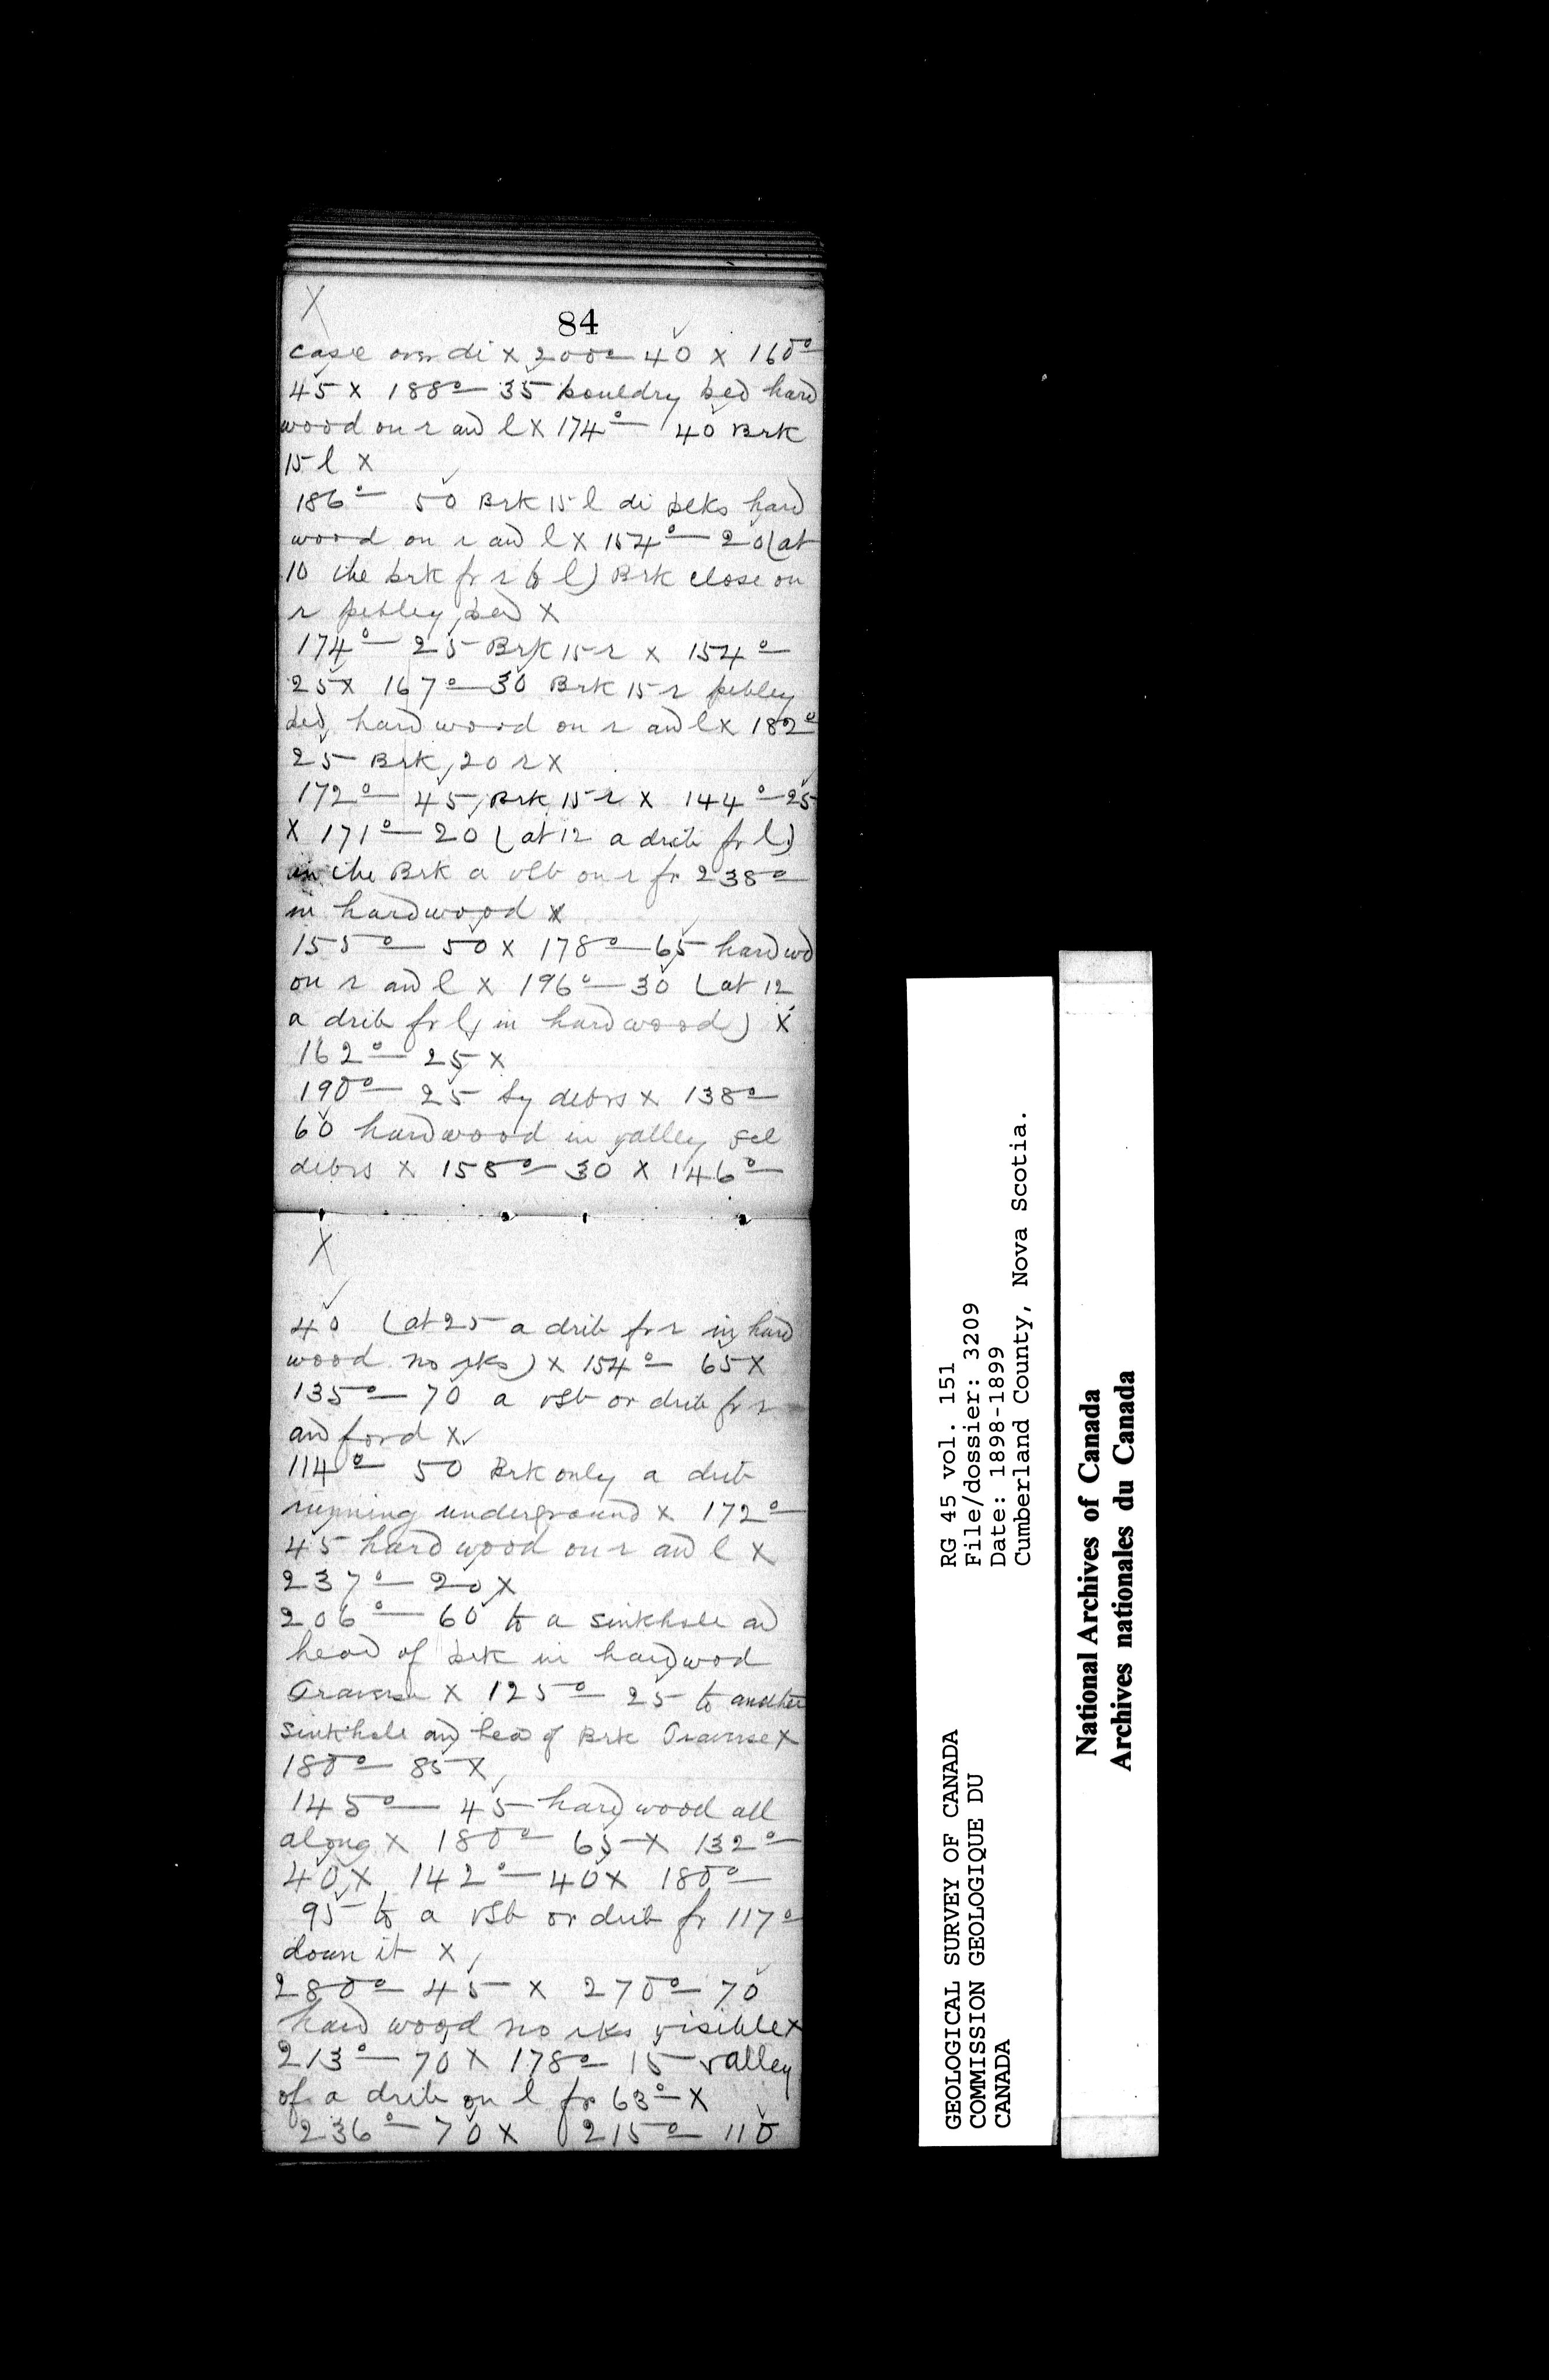 X
84
case over di x 200° 40 x 160°
45 x 188° 35 bouldry bed hard
wood on r and l x 174° 40 Brk
15 l x
186° 50 Brk 15 l di blks hard
wood on r and l x 154° 20 (at
10 the brk fr r to l) Brk close on
r pebley bed x
174° 25 Brk 15 r x 154°
25 x 167° 30 Brk 15 r pebley
bed hardwood on r and l x 182°
25 Brk 20 r x
172° 45 Brk 15 r x 144° 25
x 171° 20 (at 12 a drib fr l)
in the Brk a vsb on r fr 238°
in hardwood x
155° 50 x 178° 65 hardwd
on r and l x 196° 30 (at 12
a drib fr l in hardwood) x
162° 25 x
190° 25 sy debrs x 138°
60 hardwood in valley fel
debrs x 155° 30 x 146°
X
40 (at 25 a drib fr r in hard
wood no rks) x 154° 65 x
135° 70 a vsb or drib fr r
and ford x
114° 50 Brk only a drib
running underground x 172°
45 hardwood on r and l x
237° 20 x
206° 60 to a sinkhole and
head of brk in hardwod
Traverse x 125° 25 to another
sinkhole and head of Brk Traverse x
180° 85 x
145° 45 hardwood all
along x 180° 65 x 132°
40 x 142° 40 x 180°
95 to a vsb or drib fr 117°
down it x
280° 45 x 270° 70
hard wood no rks visible x
213° 70 x 178° 15 valley
of a drib on l fr 63° x
236° 70 x 215° 110
GEOLOGICAL SURVEY OF CANADA
COMMISSION GEOLOGIQUE DU
CANADA
RG 45 vol. 151
File/dossier: 3209
Date: 1898-1899
Cumberland County, Nova Scotia.
National Archives of Canada
Archives nationales du Canada